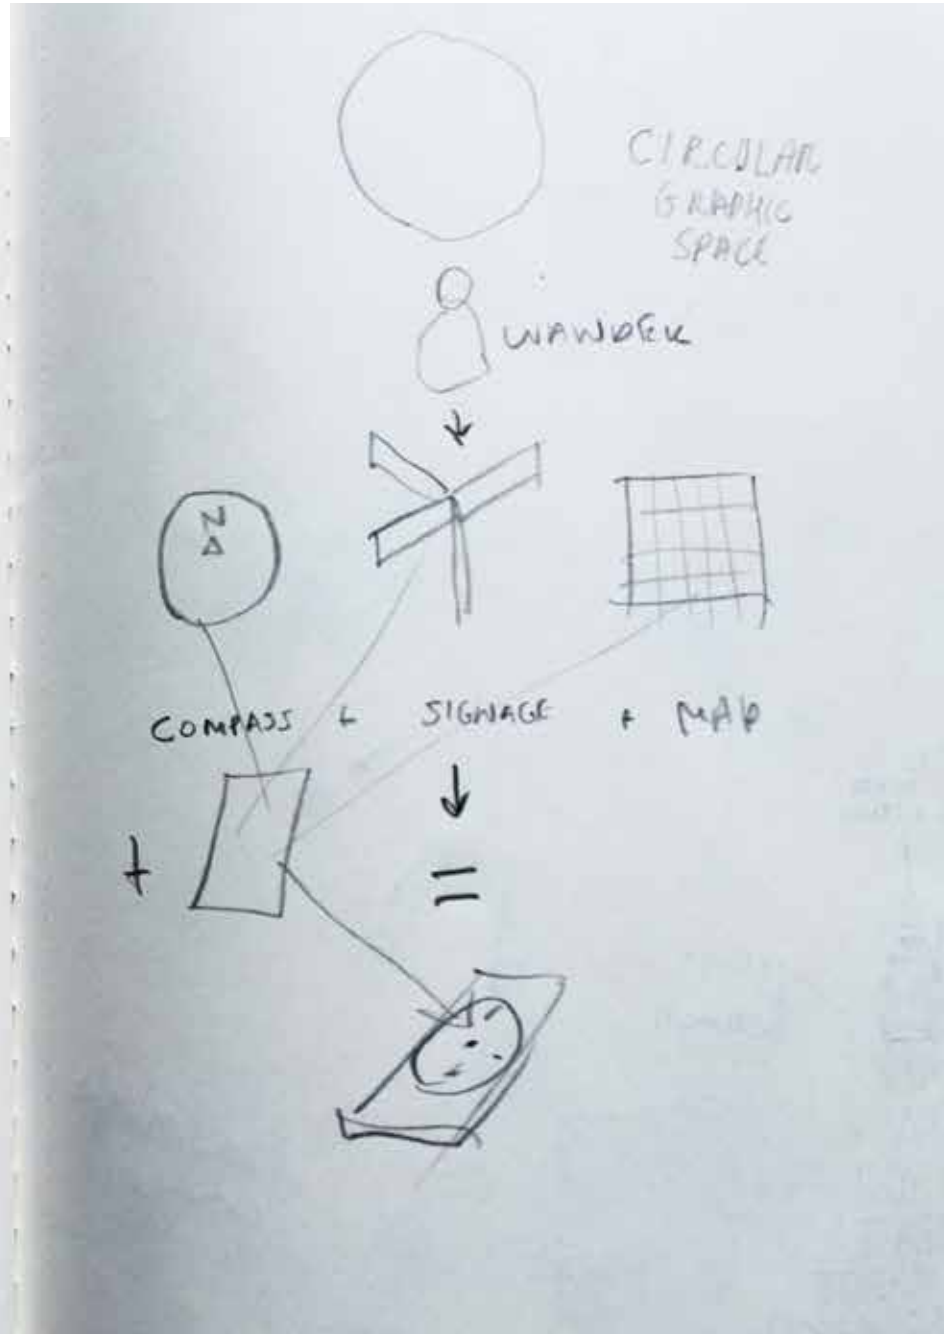 CIRCULAR
GRAPHIC
SPACE
WANDER
N
COMPASS + SIGNAGE + MAP
+
=